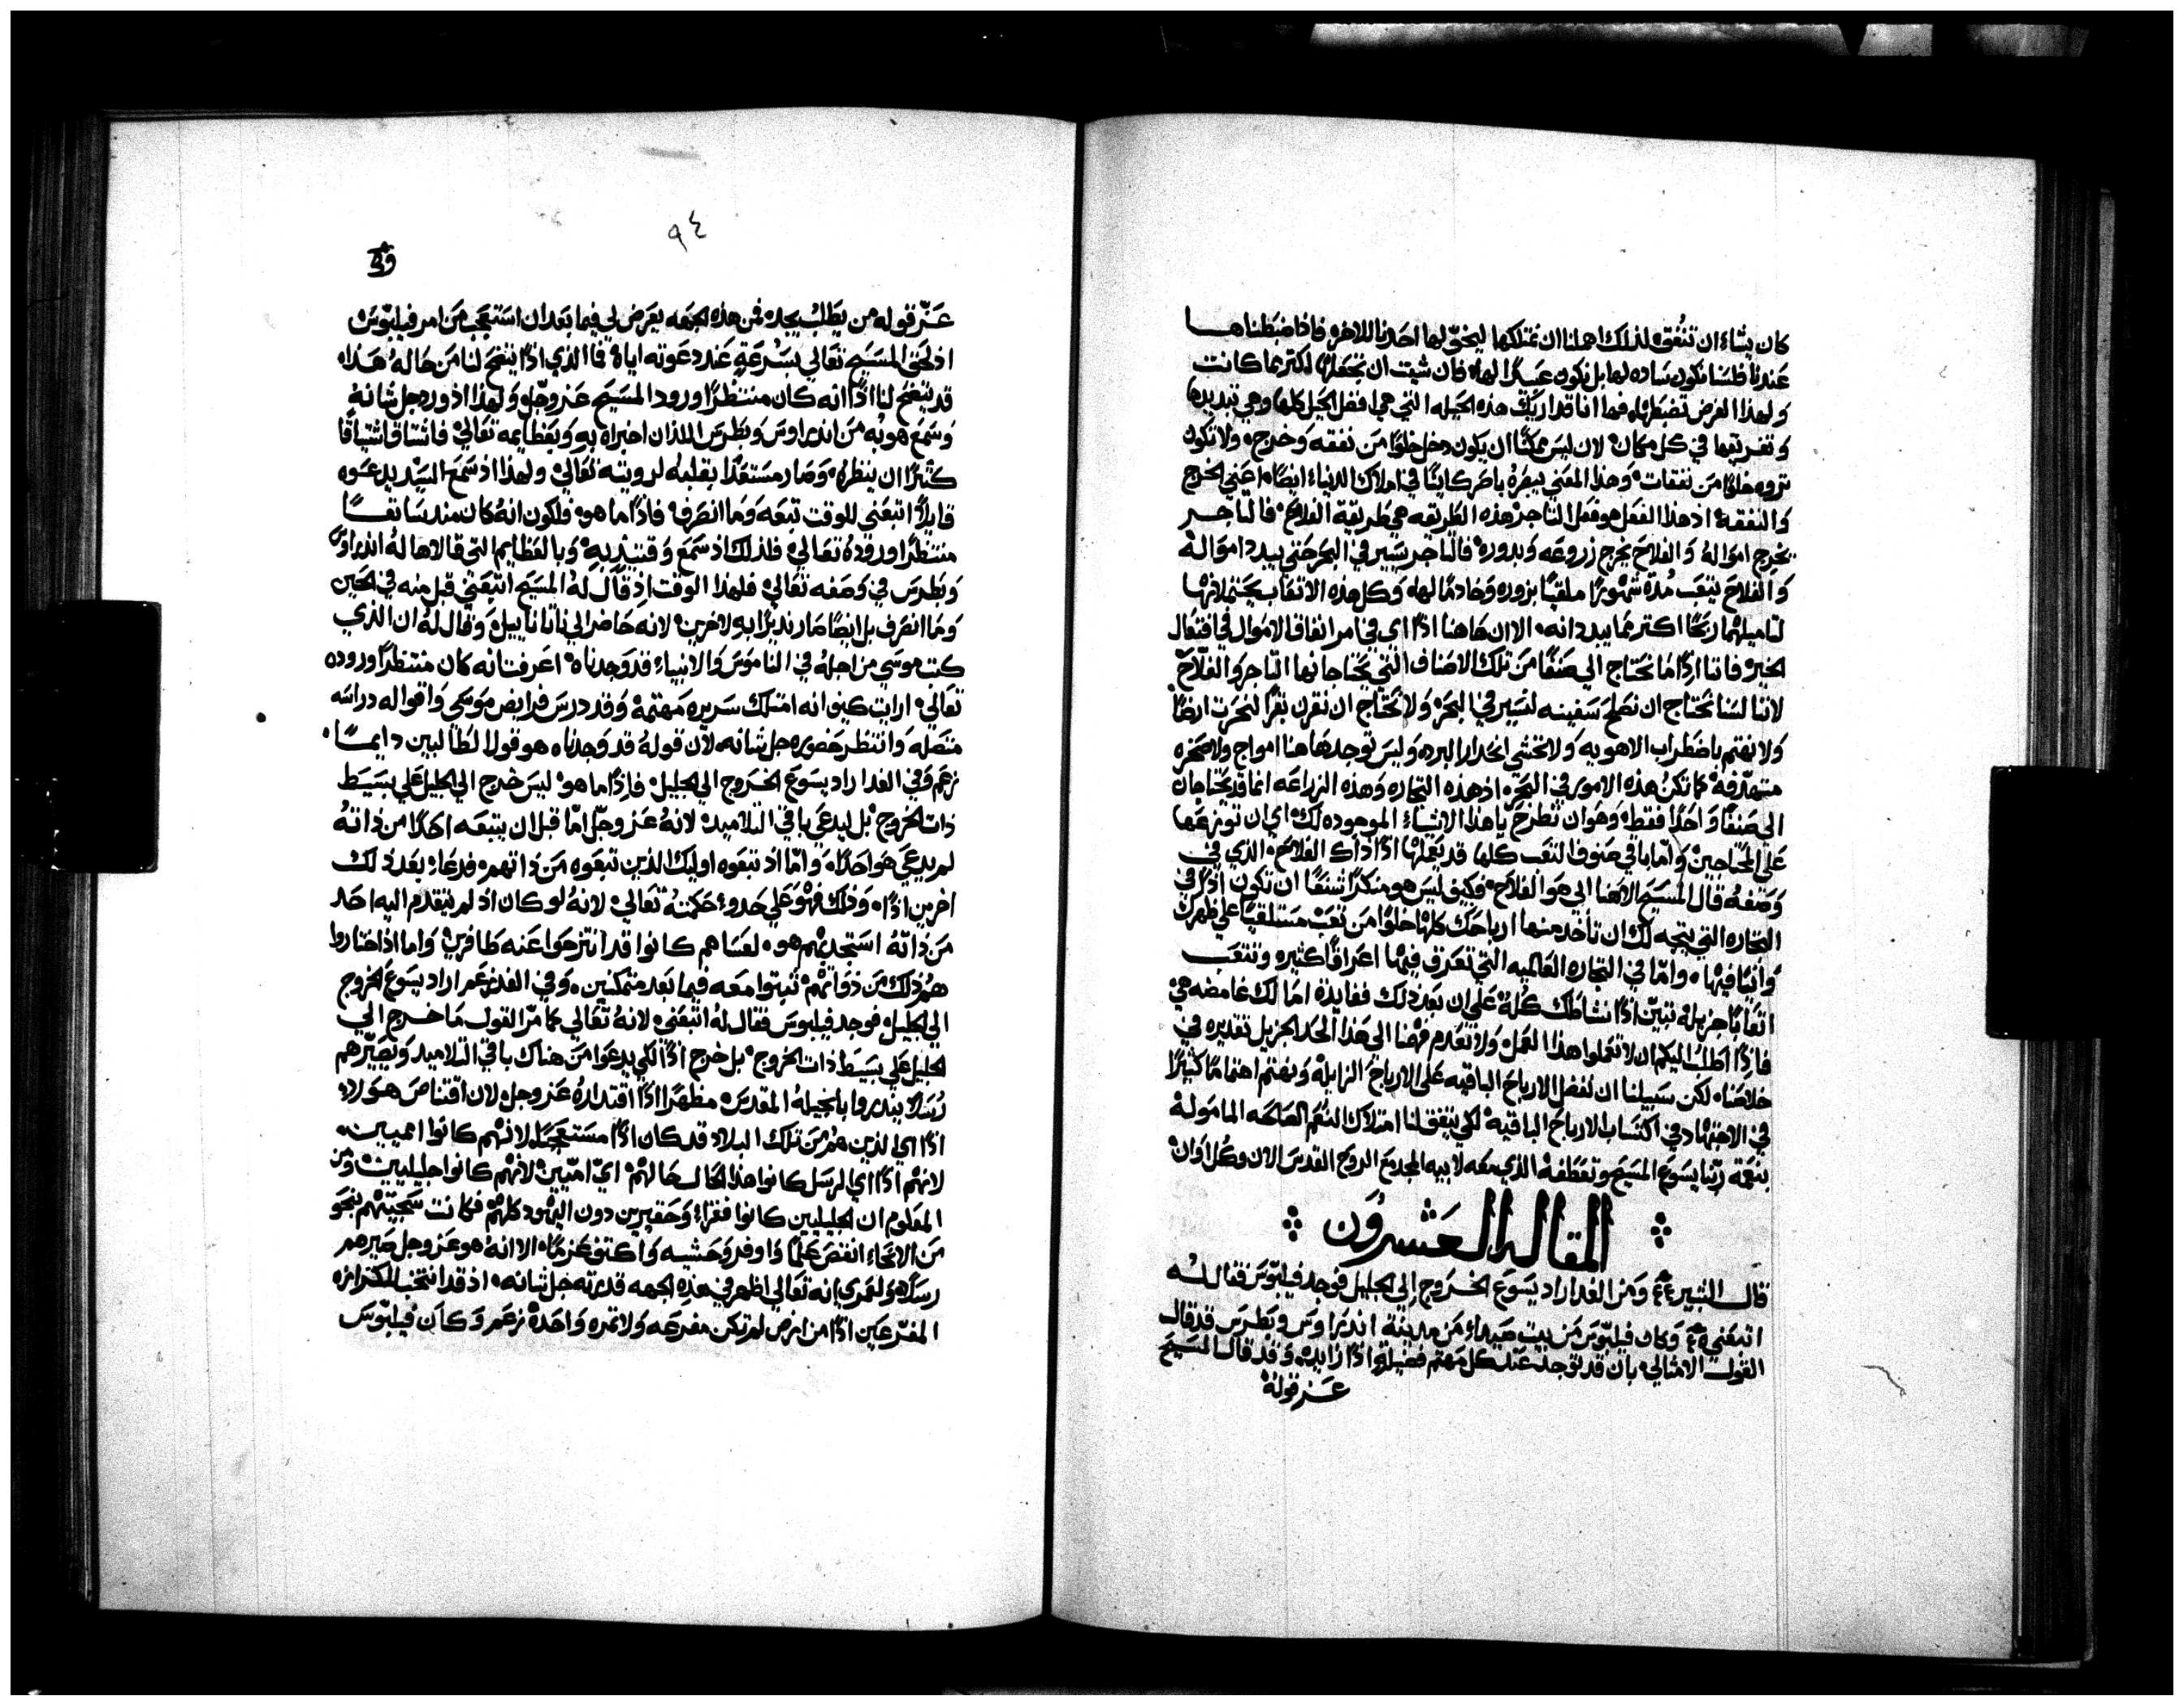 كان يشاء ان تنفق لذلك اهلنا ان نمتلكها ليحني لها احدنا للاخر فاذا ضبطناها
عندنا فلسنا نكون ساده لها بل نكون عبيدًا لها فان شيت ان تجعلها اكثر مما كانت
ولهذا الغرض تضبطها فها انا قد اريتك هذه الحيله التي هي افضل الحيل كلها وهي تبديدها
وتفريقها في كل مكان لان ليس ممكنًا ان يكون دخل خلوًا من نفقه وخرج ولا تكون
ثروه خلوًا من نفقات وهذا المعني يبصره باصر كاينًا في املاك الدنياء ايضًا اعني الخرج
والنفقه اذ هذا الفعل هو فعل التاجر هذه الطريقه هي طريقة الفلاح فالتاجر
يخرج امواله والفلاح يخرج زروعه وبدوره فالتاجر يسير في البحر حتي يبدد امواله
والفلاح يتعب مدة شهورًا ملقيًا بزوره وخادمًا لها وكل هذه الاتعاب يحتملانها
لتاميلهما ربحًا اكثر مما يبددانه الا ان هاهنا اذًا اي في امر انفاق الاموال في افتعال
الخير فاننا اذًا ما نحتاج الي صنفًا من تلك الاصناف التي يحتاجانها التاجر والفلاح
لاننا لسنا نحتاج ان نصلح سفينه لنسير في البحر ولا نحتاج ان نقرن بقرًا لنحرث ارضًا
ولا نهتم باضطراب الاهويه ولا نخشي انحدار البرد وليس توجد هاهنا امواج ولا صخره
كما تكن هذه الامور في البحر اذ هذه التجاره وهذه الزراعه انما قد يحتاجان
الي صنفًا واحدًا فقط وهو ان تطرح يا هذا الاشياء الموجوده لك اي ان توزعها
علي المحتاجين واما باقي صنوف التعب كلها قد يعملها اذًا ذاك الفلاح الذي في
وصفه قال المسيح الاهنا ابي هو الفلاح فكيف ليس هو منكرًا شنعًا ان تكون اذًا في
التجاره التي يتجه لك ان تأخذ منها ارباحك كلها خلوًا من تعب مستلقيًا علي ظهرك
وانيًا فيها واما في التجاره العالميه التي تعرق فيها اعراقًا كثيره وتتعب
اتعابًا جزيله تبين اذًا نشاطك كله علي ان بعد ذلك ففايدة امالك غامضه هي
فاذًا اطلب اليكم ان لا تعملوا هذا العمل ولا نعدم فهمنا الي هذا الحد الجزيل تقديره في
خلاصنا لكن سبيلنا ان نفضل الارباح الباقيه علي الارباح الزايله ونهتم اهتمامًا كثيرًا
في الاجتهاد في اكتساب الارباح الباقيه لكي يتفق لنا امتلاك النعم الصالحه المامولة
بنعمة ربنا يسوع المسيح وتعطفه الذي معه لابيه المجد مع الروح القدس الان وكل اوان
المقاله العشرون
قال البشير ومن الغد اراد يسوع الخروج الي الجليل فوجد فيلبوس فقال له
اتبعني وكان فيلبوس من بيت صيداء من مدينة اندراوس وبطرس قد قال
القول الامثالي بان قد توجد عند كل مهتم فضيلة اذًا زايده وقد قال المسيح
عز قوله
٩٤
عز قوله من يطلب يجد فمن هذه الجهه يعرض لي فيما بعد ان استعجب من امر فيلبوس
اذ لحق المسيح تعالي بسرعةٍ عند دعوته اياه فما الذي اذًا يتضح لنا من حاله هذا
قد يتضح لنا اذًا انه كان منتظرًا ورود المسيح عز وجل ولهذا اذ ورد جل شانه
وسمع هو به من اندراوس وبطرس اللذان اخبراه به وبعظايمه تعالي فاشتاق اشتياقًا
كثيرًا ان ينظره وصار مستعدًا بقلبه لرويته تعالي ولهذا اذ سمع السيد يدعوه
قايلاً اتبعني للوقت تبعه وما انصرف فاذًا ما هو فلكون انه كان منذ سابقًا
منتظرًا وروده تعالي فلذلك اذ سمع وقتيذٍ به وبالعظايم التي قالاها له اندراوس
وبطرس في وصفه تعالي فلهذا الوقت اذ قال له المسيح اتبعني قبل منه في الحين
وما انصرف بل ايضًا صار نذيرًا به لاخرين لانه حاضر الي ناتاناييل وقال له ان الذي
كتب موسي من اجله في الناموس والانبياء قد وجدناه اعرفت انه كان منتظرًا وروده
تعالي ارايت كيف انه امتلك سريره مهتمة وقد درس فرايض موسي واقواله دراسه
متصله وانتظر حضوره جل شانه لان قوله قد وجدناه هو قول الطالبين دايمًا
زعم وفي الغد اراد يسوع الخروج الي الجليل فاذًا ما هو ليس خرج الي الجليل علي بسيط
ذات الخروج بل ليدعي باقي التلاميد لانه عز وجل اما قبل ان يتبعه احدًا من ذاته
لم يدعي هو احدًا واما اذ تبعوه اوليك الذين تبعوه من ذاتهم فدعاء بعد ذلك
اخرين اذًا وذلك فهو علي حدو حكمته تعالي لانه لو كان اذ لم يتقدم اليه احد
من ذاته استجذبهم هو لعساهم كانوا قد انتزحوا عنه طافرين واما اذ اختاروا
هم ذلك من ذواتهم ثبتوا معه فيما بعد متمكنين وفي الغد زعم اراد يسوع الخروج
الي الجليل فوجد فيلبوس فقال له اتبعني لانه تعالي كما مر القول ما خرج الي
الجليل علي بسيط ذات الخروج بل خرج اذًا لكي يدعوا من هناك باقي التلاميد ويصيرهم
رسلاً ينذروا بانجيله المقدس مظهرًا اذًا اقتداره عز وجل لان اقتناص هولاء
اذًا اي الذين هم من تلك البلاد قد كان اذًا مستعجبًا لانهم كانوا اميين
لانهم اذًا اي الرسل كانوا هذا الحال حالهم اي اميين لانهم كانوا جليليين ومن
المعلوم ان الجليليين كانوا فقراء وحقيرين دون اليهود كلهم فكانت سجيتهم بنحو
من الانحاء انقص علمًا واوفر وحشيه واكثر الا انه هو عز وجل صيرهم
رسلاً ولعمري انه تعالي اظهر في هذه الجهه قدرته جل شانه اذ قد انتخب للكرازه
المفزعين اذًا من ارض لم تكن مفرعه ولا ثمره واحدة زعم وكان فيلبوس